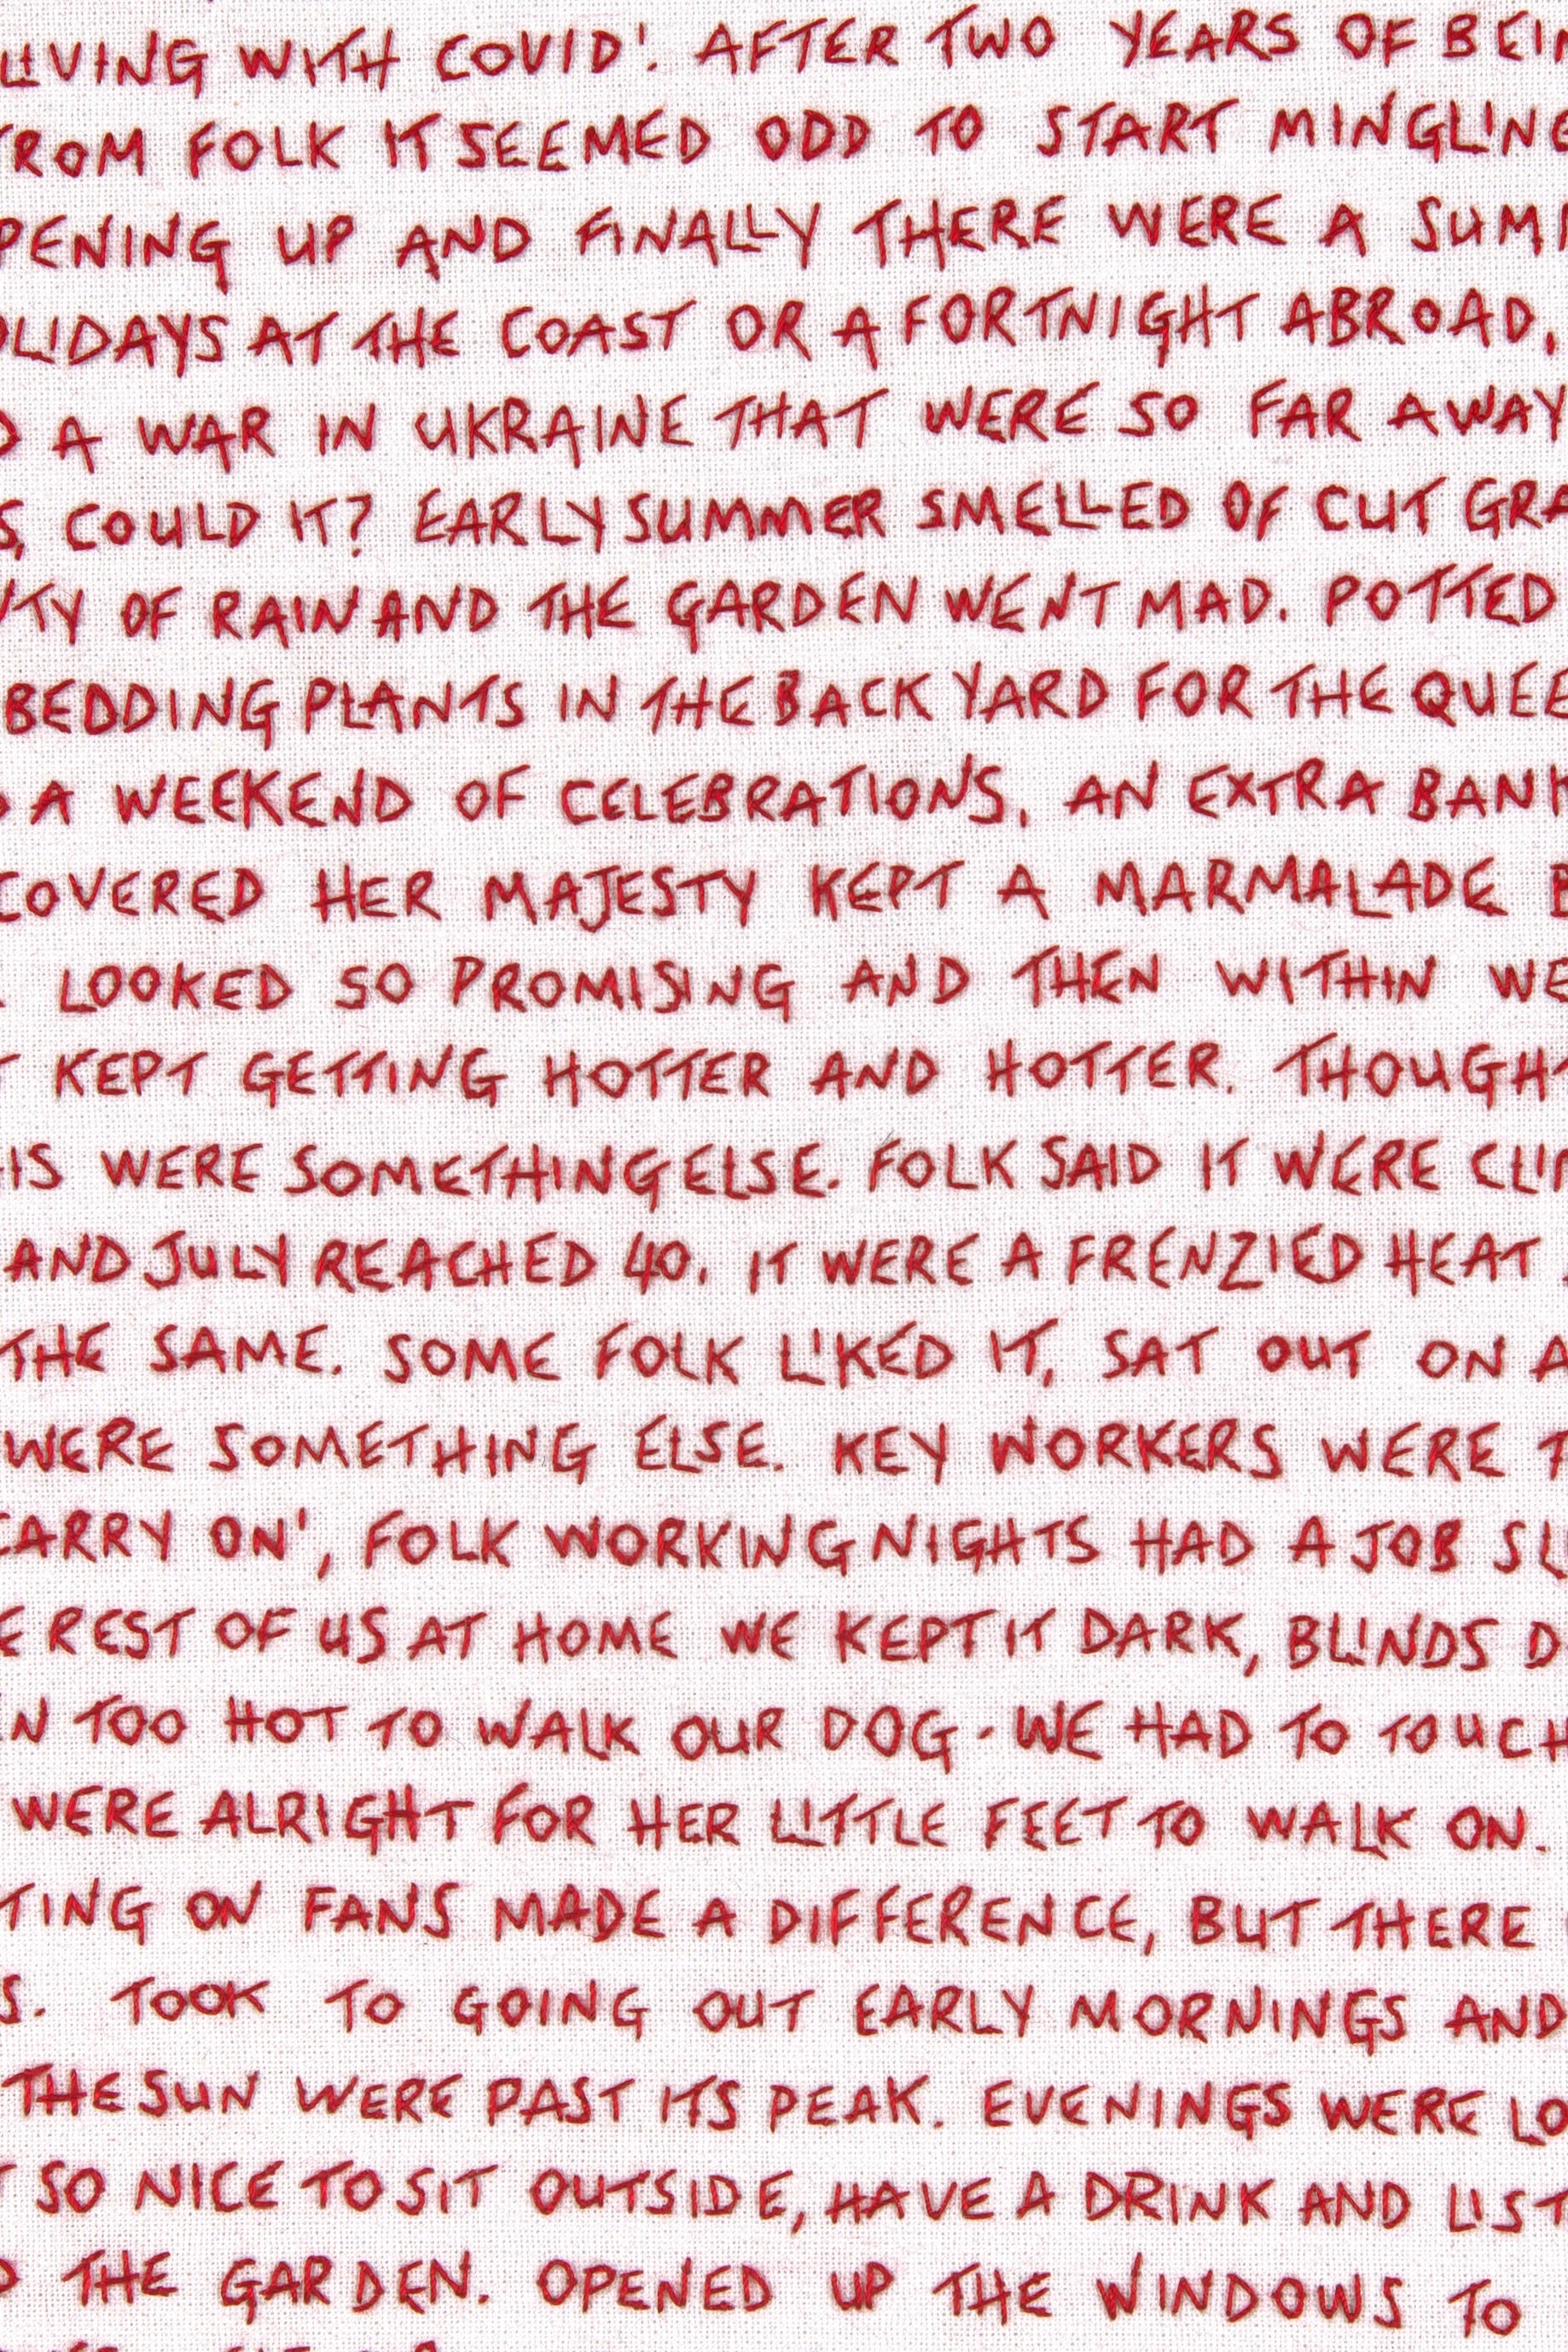 LIVING WITH COVID'. AFTER TWO YEARS OF BEI
ROM FOLK IT SEEMED ODD TO START MINGLING
PENING UP AND FINALLY THERE WERE A SUM
OLIDAYS AT THE COAST OR A FORTNIGHT ABROAD,
D A WAR IN UKRAINE THAT WERE SO FAR AWAY
S, COULD IT? EARLY SUMMER SMELLED OF CUT GRA
NTY OF RAIN AND THE GARDEN WENT MAD. POTTED
BEDDING PLANTS IN THE BACK YARD FOR THE QUEE
A WEEKEND OF CELEBRATIONS, AN EXTRA BANK
COVERED HER MAJESTY KEPT A MARMALADE
LOOKED SO PROMISING AND THEN WITHIN WE
T KEPT GETTING HOTTER AND HOTTER. THOUGHT
HIS WERE SOMETHING ELSE. FOLK SAID IT WERE CLIM
AND JULY REACHED 40. IT WERE A FRENZIED HEAT
THE SAME. SOME FOLK LIKED IT, SAT OUT ON A
WERE SOMETHING ELSE. KEY WORKERS WERE
CARRY ON', FOLK WORKING NIGHTS HAD A JOB SL
E REST OF US AT HOME WE KEPT IT DARK, BLINDS D
N TOO HOT TO WALK OUR DOG - WE HAD TO TOUCH
WERE ALRIGHT FOR HER LITTLE FEET TO WALK ON.
TING ON FANS MADE A DIFFERENCE, BUT THERE
S. TOOK TO GOING OUT EARLY MORNINGS AND
THE SUN WERE PAST ITS PEAK. EVENINGS WERE LO
T SO NICE TO SIT OUTSIDE, HAVE A DRINK AND LIST
D THE GARDEN. OPENED UP THE WINDOWS TO